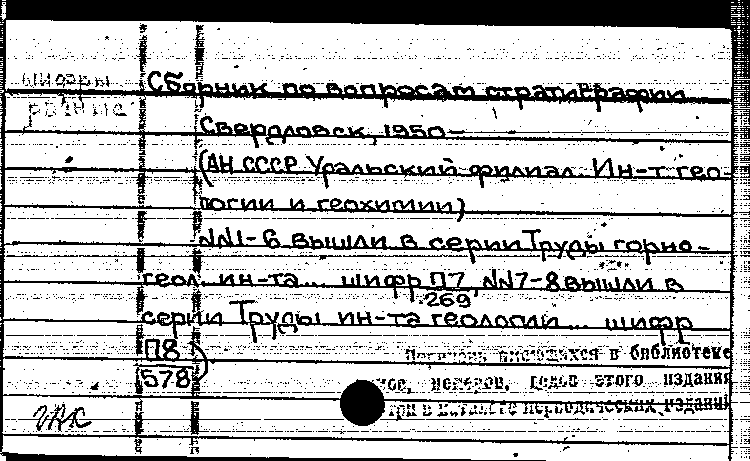 шифры
разные
Сборник по вопросам стратиграфии
Свердловск, 1950-
(АН СССР Уральский филиал. Ин-т гео-
логии и геохимии)
NN1-6 вышли в серии Труды горно-
геол. ин-та... шифр П7, NN7-8 вышли в
269
серии Труды ин-та геологии... шифр
П8
578
имеющихся в библиотеке
номеров, годов этого издания
в каталоге периодических изданий